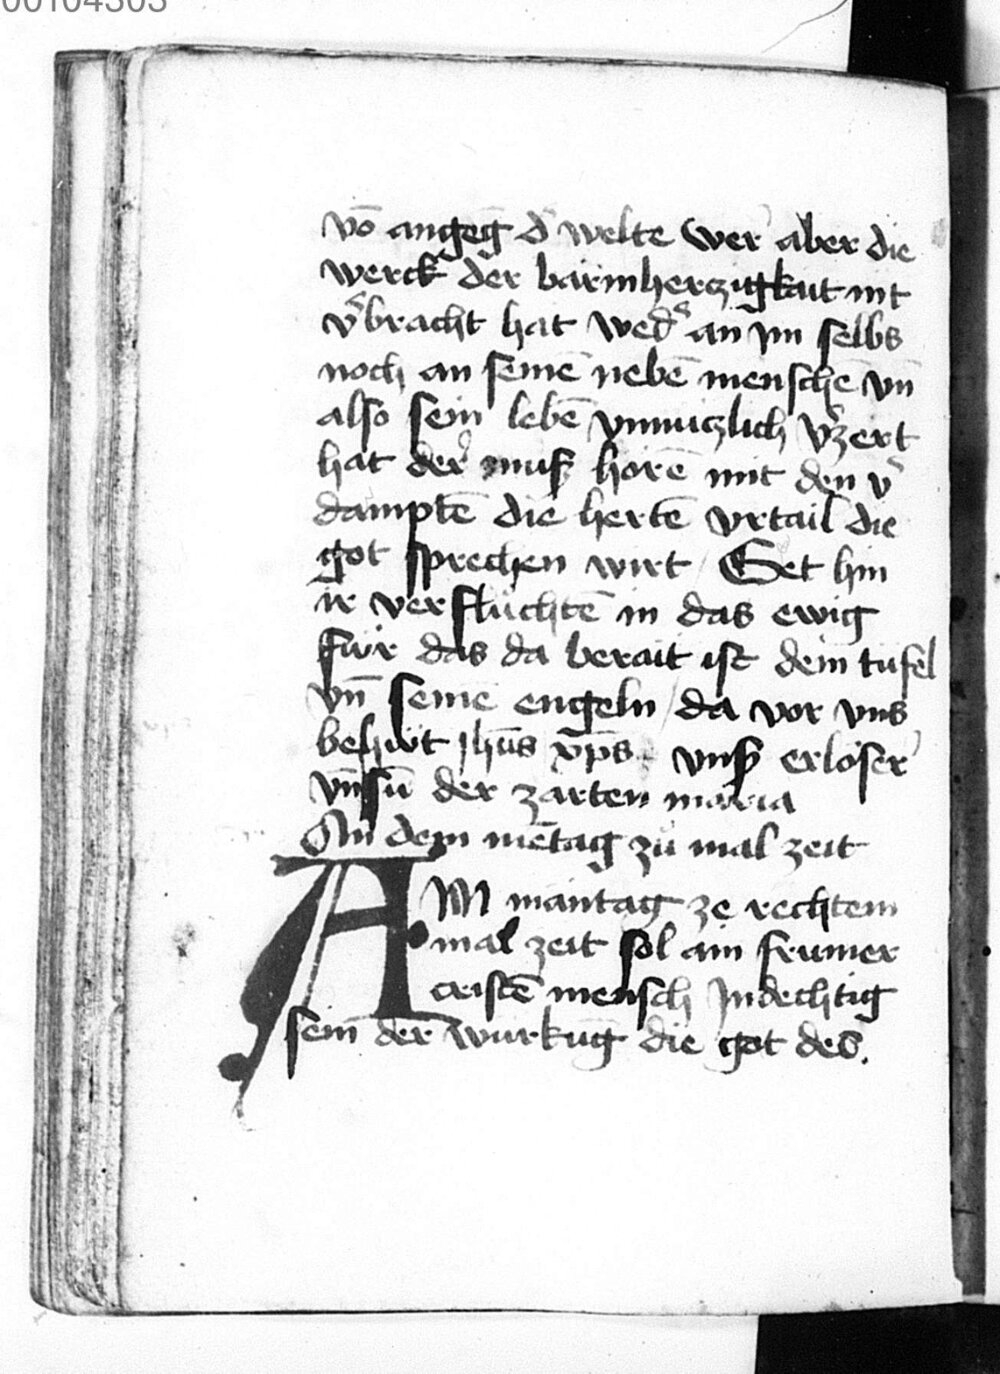 00104303
vō angenḡ d' welte Wer aber die
werck der barmherczigkait nit
v'bracht hat wed' an jm selbs
noch an seinē nebē menschē vn̄
also sein lebē vnnuczlich v'zert
hat der muſ horē mit den v'
damptē die hertē vrtail die
got sprechen wirt / Get hin
ir verfluchtē in das ewig
fur das da berait ist dem tufel
vn̄ seinē engeln / da vor vns
behüt jhūs xp̄s vnſ' erloser
vn̄ sū der zarten maria
An dem mētag zů mal zeit
AM mäntag ze rechtem
mal zeit sol ain frumer
cristē mensch jndechtig
sein der würkūg die got des.